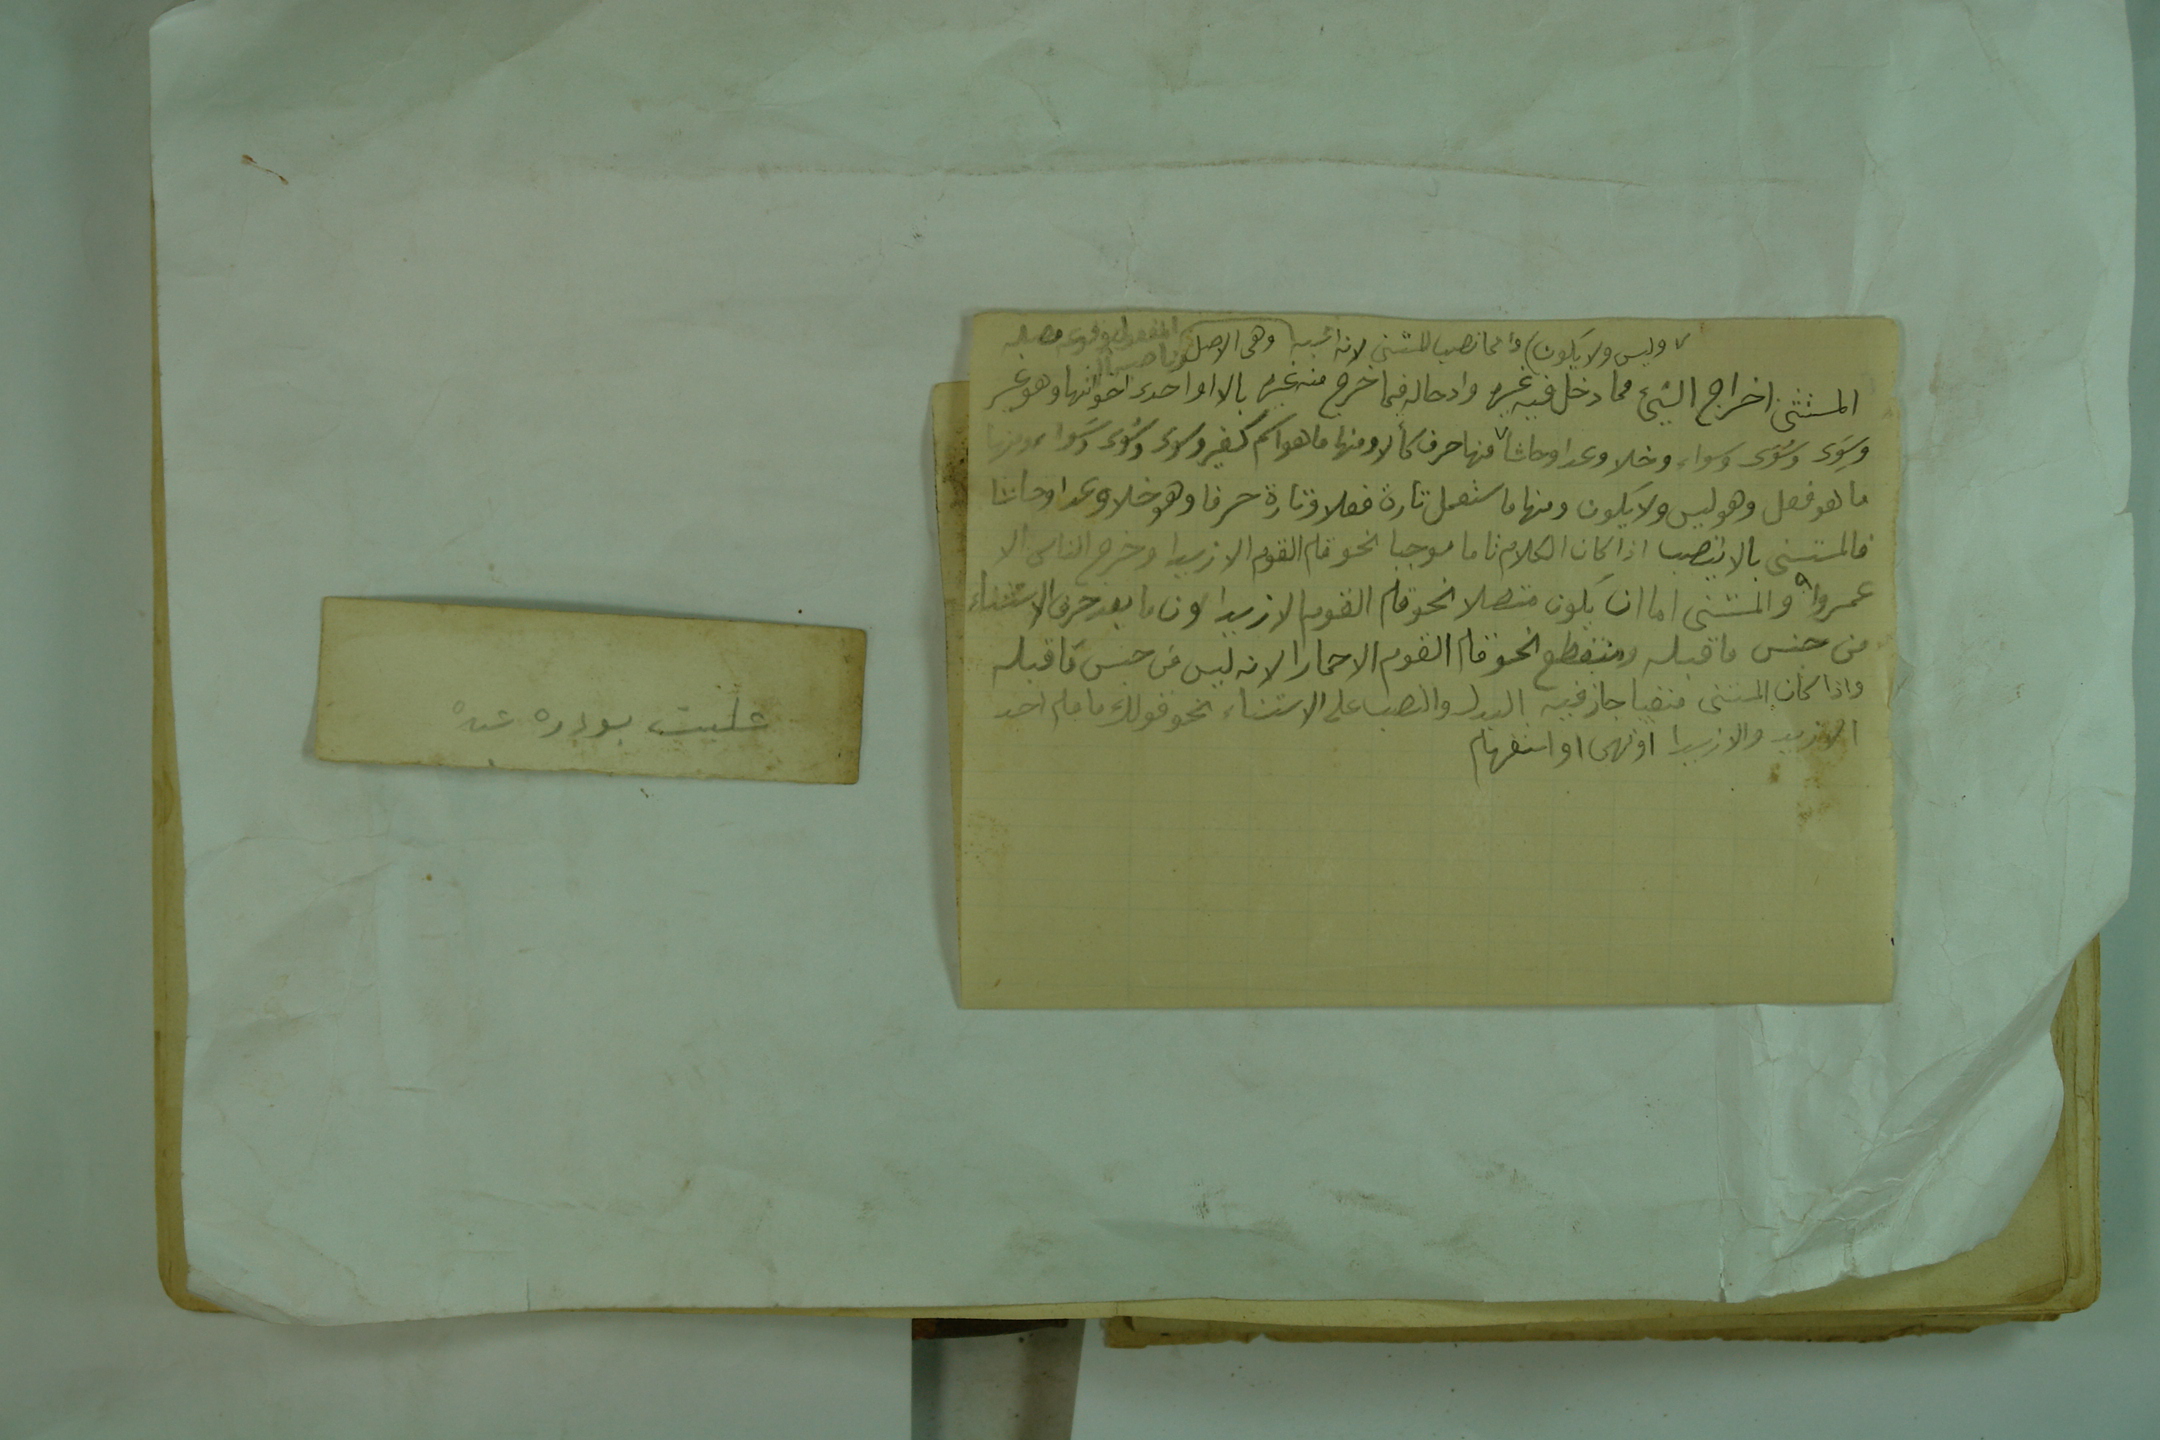 ٧ وليس ولا يكون) وانما نصب المستثنى لانه وهى الاصل
المفعول
المستثنى اخراج الشيئ مما دخل فيه غيره وادخاله فيما خرج منه غيره بالا او احدى اخواتها وهو غير
وسِوَى وسُوَى وسواء وخلا وعدا وحاشا ٧ منها حرف كالا ومنها ما هو اسم كغير وسوى وسُوى وسَواء ومنها
ما هو فعل وهو ليس ولا يكون ومنها ما ستعمل تارة فعلا وتارة حرفا وهو خلا وعدا وحاشا
فالمستثنى بالا ينصب اذا كان الكلام تاما موجبا نحو قام القوم الا زيدا وخرج الناس الا
عمروا والمستثنى اما ان يكون متصلا نحو قام القوم الا زيدا لان ما بعد حرف الاستثناء
من جنس ما قبله ومنقطع نحو قام القوم الا حمارا لانه ليس من جنس ما قبله
واذا كان المستثنى منفيا جاز فيه البدل والنصب على الاستثناء نحو قولك ما قام احد
الا زيد والا زيدا او نهى او استفهام